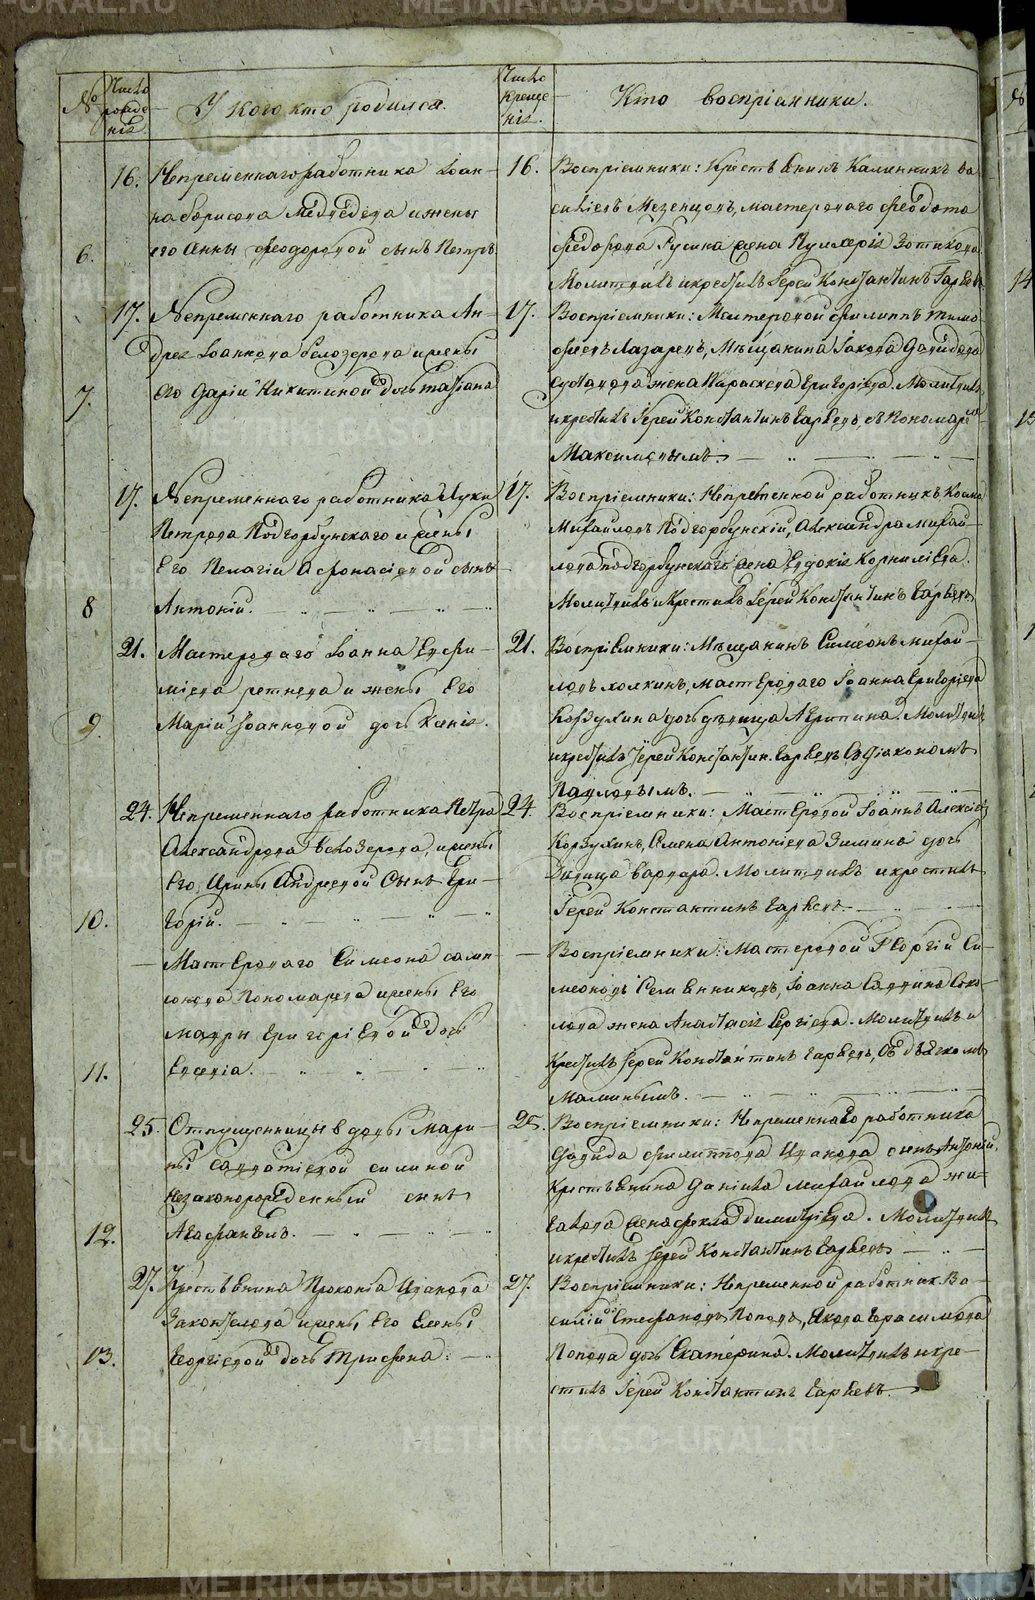 №
Число рожде-
нія.
У кого кто родился.
Число креще-
нія.
Кто воспріемники.
6.
16.
Непременнаго работника Іоан-
на Борисова Медведева и жены
его Анны Феодоровой сынъ Петръ
16.
Воспріемники: Крестьянинъ Калинникъ Ва-
сильевъ Мезенцовъ, мастероваго Федота
Федорова Гусина жена Пулхерія Зотикова
Молитвилъ и крестилъ Іерей Константинъ Гаряевъ
7.
17.
Непременнаго работника Ан-
дрея Іоаннова Белозерова и жены
его Дарьи Никитиной дочь Татіана
17.
Воспріемники: Мастеровой Филиппъ Тимо-
феевъ Лазаревъ, Мѣщанина Іакова Давидова
жена Параскева Григоріева. Молитвилъ
и крестилъ Іерей Константинъ Гаряевъ, съ Пономаремъ
Максимовымъ.
8
17.
Непременнаго работника Луки
Петрова Подгорбунскаго и жены
Его Пелагіи Афонасіевой сынъ
Антоній.
17.
Воспріемники: Непременной работникъ Косма
Михайловъ Подгорбунскій, Александра Михай-
лова Подгорбунскаго жена Евдокія Корниліева.
Молитвилъ и Крестилъ Іерей Константинъ Гаряевъ
9.
21.
Мастероваго Іоанна Евфи-
міева ретнева и жены Его
Маріи Іоанновой дочь Ксенія.
21.
Воспріемники: Мѣщанинъ Симеонъ Михай-
ловъ Холкинъ, Мастероваго Іоанна Григоріева
Корзухина дочь дѣвица Агриппина. Молитвилъ
и крестилъ Іерей Константин. Гаряевъ съ діакономъ
Павловымъ.
10.
24.
Непременнаго работника Петра
Александрова Белозерова, и жены
Его, Ирины Андреевой Сынъ Гри-
горій.
24.
Воспріемники: Мастеровой Іоаннъ Алексіевъ
Корзухинъ, Семена Антоніева Зимина дочь
Дѣвица Варвара. Молитвилъ и крестилъ
Іерей Константинъ Гаряевъ.
11.
Мастероваго Симеона Самп-
сонова Пономарева и жены Его
Мавры Григоріевой дочь
Евгенія.
Воспріемники: Мастеровой Георгій Си-
меоновъ Селянниковъ, Іоанна Саввина Соко-
лова жена Анастасія Сергіева. Молитвилъ и
Крестилъ Іерей Константинъ Гаряевъ, съ дьячкомъ
Маминымъ.
12.
25.
Отпущенницы вдовы Мари-
ны Савватіевой Силиной
Незаконорожденный сынъ
Агафангелъ.
25.
Воспріемники: Непременнаго работника
Давида Филиппова Ушакова сынъ Антоній,
Крестьянина Даніила Михайлова
жена Фекла Димитріева. Молитвилъ
и крестилъ Іерей Константинъ Гаряевъ
13.
27.
Крестьянина Прокопія Ушакова
и жены Его Елены
Георгіевой дочь Трифена.
27.
Воспріемники: Непременной работник. Ва-
силій Стефановъ Поповъ, Якова Герасимова
Попова дочь Екатерина. Молитвилъ и кре-
стилъ Іерей Константинъ Гаряевъ.
METRIKI.GASO-URAL.RU